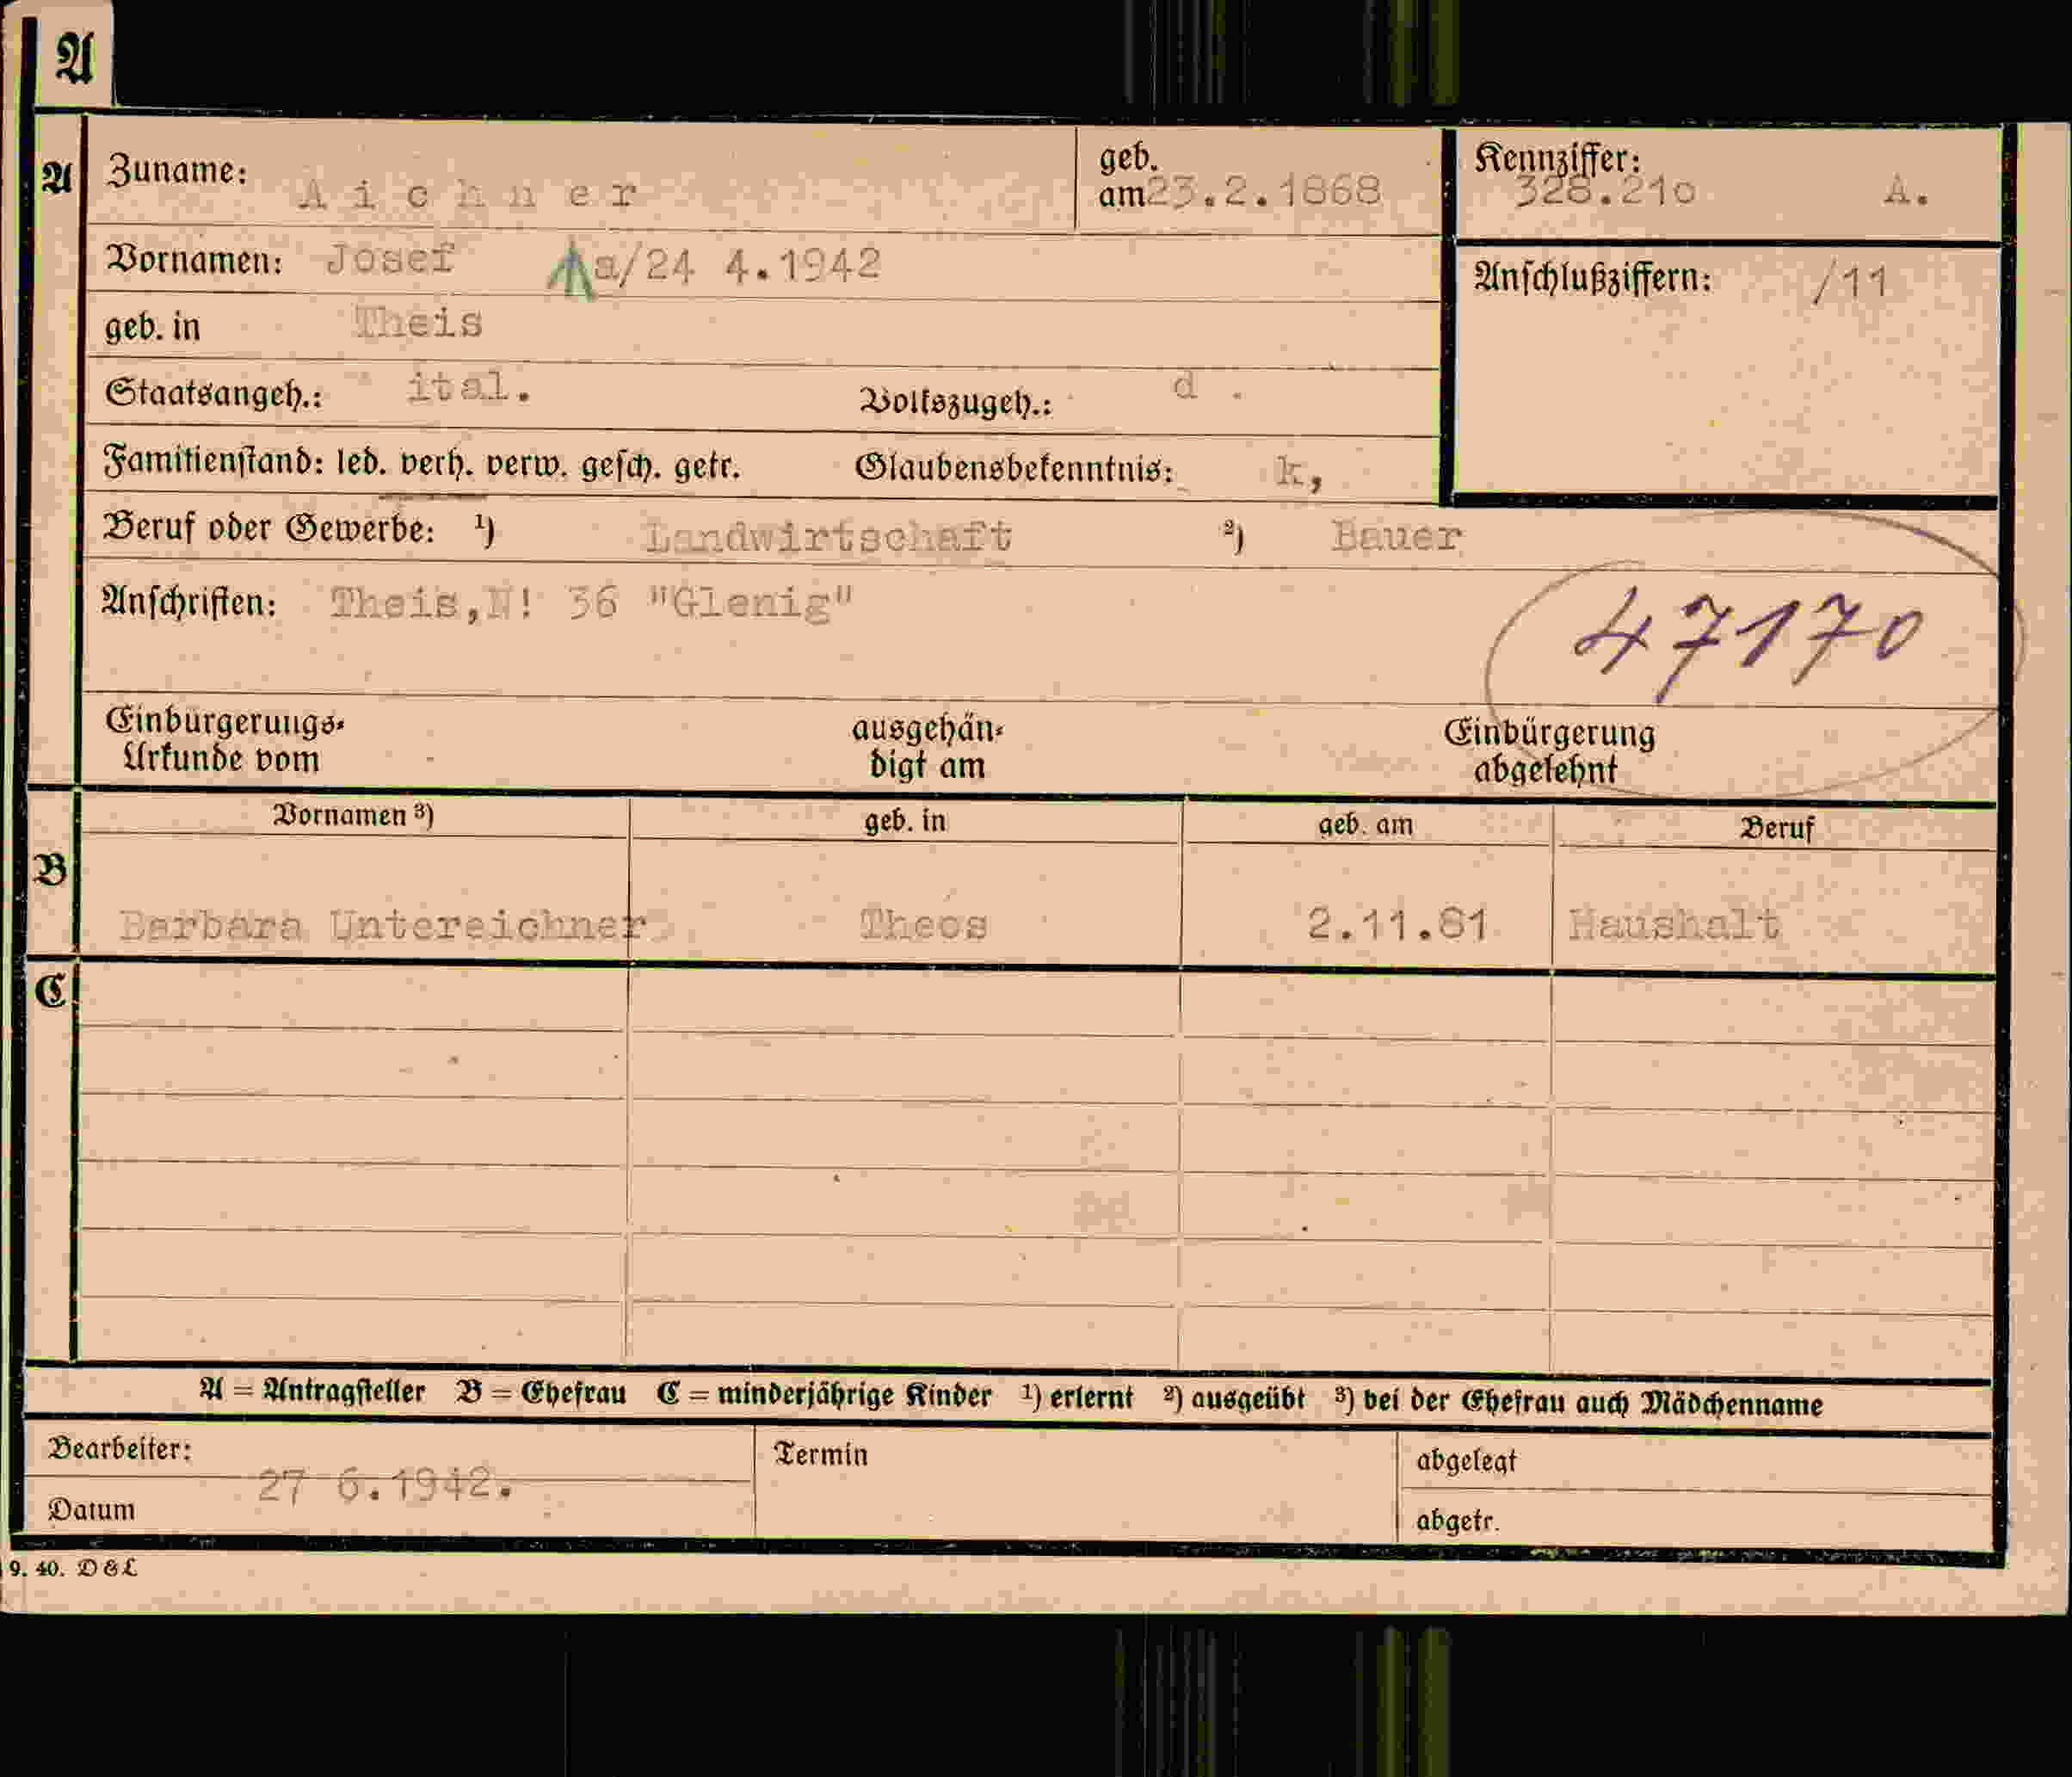 A
A
Zuname: Aichner
geb. am 23.2.1868
Kennziffer: 328.21o A.
Vornamen: Josef a/24 4.1942
Anschlußziffern: /11
geb. in Theis
Staatsangeh.: ital. Volkszugeh.: d .
Familienstand: led. verh. verw. gesch. getr. Glaubensbekenntnis: k,
Beruf oder Gewerbe: ¹) Landwirtschaft ²) Bauer
Anschriften: Theis,N! 36 "Glenig"
47170
Einbürgerungs-
Urkunde vom
ausgehän-
digt am
Einbürgerung
abgelehnt
B
Vornamen ³) geb. in geb. am Beruf
Barbara Untereichner Theos 2.11.81 Haushalt
C
A = Antragsteller B = Ehefrau C = minderjährige Kinder ¹) erlernt ²) ausgeübt ³) bei der Ehefrau auch Mädchenname
Bearbeiter:
27 6.1942.
Datum
Termin
abgelegt
abgetr.
9. 40. D & L